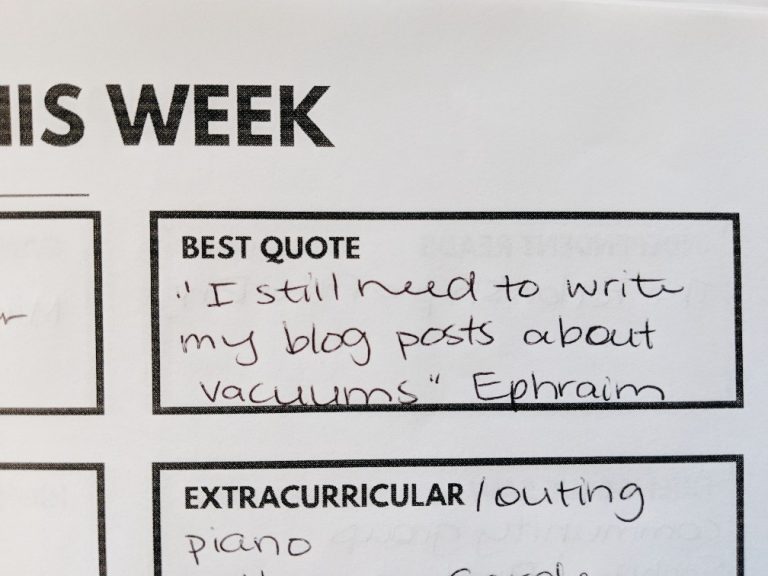 HIS WEEK
BEST QUOTE
"I still need to write
my blog posts about
vacuums" Ephraim
EXTRACURRICULAR /outing
piano